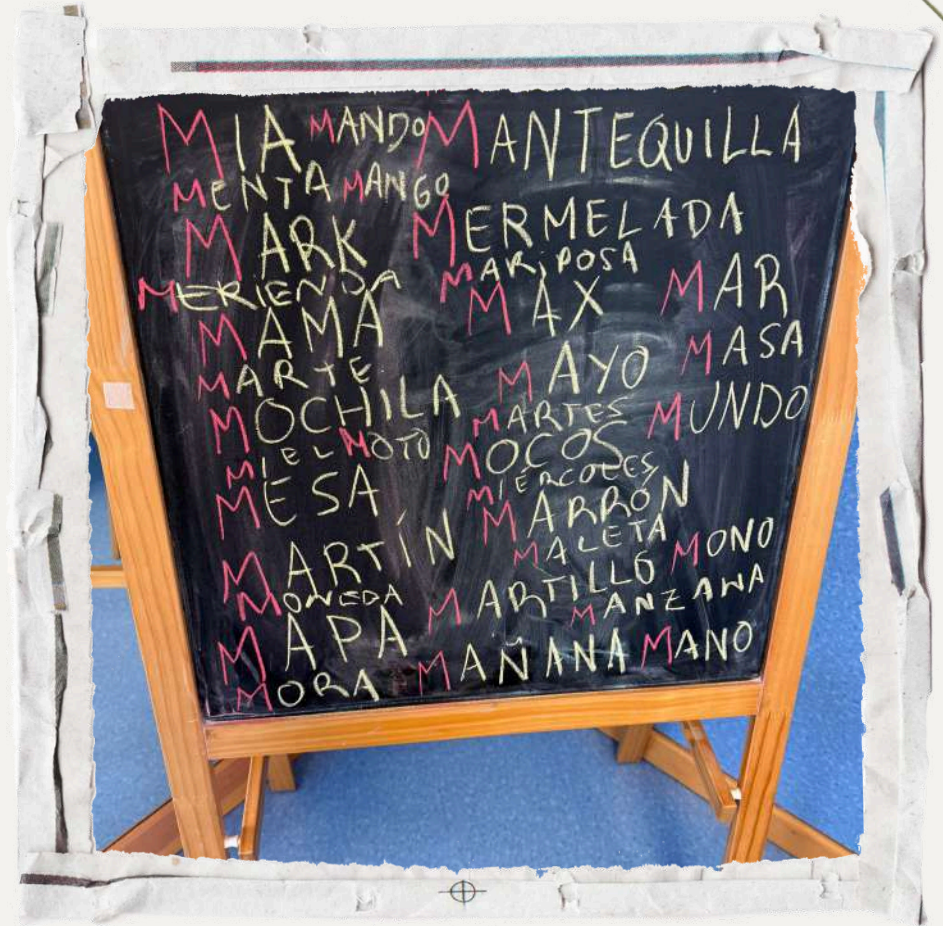 MIA MANDO MANTEQUILLA
MENTA MANGO
MARK MERMELADA
MERIENDA MARiPOSA
MAMA MAX MAR
MARTE MAYO MASA
MOCHILA MARTES MUNDO
MIEL MOTO MOCOS
MESA MIÉRCOLES
MARTÍN MARRÓN
MALETA MONO
MONEDA MARTILLO MANZANA
MAPA MAÑANA MANO
MORA